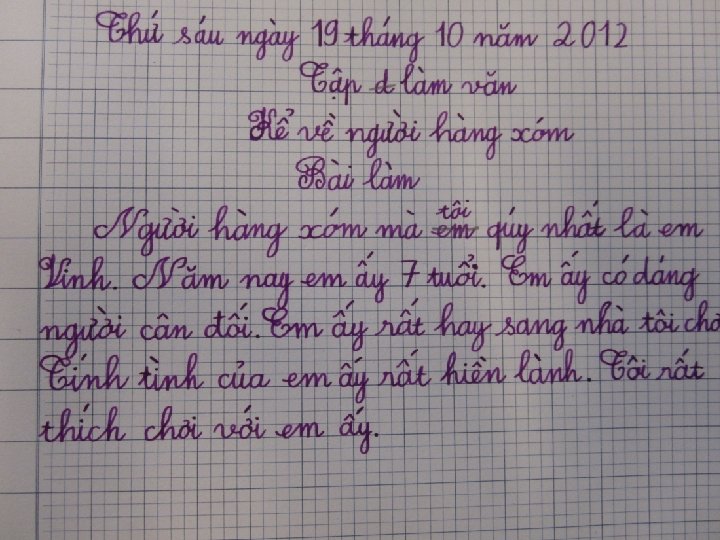 Thứ sáu ngày 19 tháng 10 năm 2012
Tập d làm văn
Kể về người hàng xóm
Bài làm
tôi
Người hàng xóm mà em qúy nhất là em
Vinh. Năm nay em ấy 7 tuổi. Em ấy có dáng
người cân đối. Em ấy rất hay sang nhà tôi chơ
Tính tình của em ấy rất hiền lành. Tôi rất
thích chơi với em ấy.